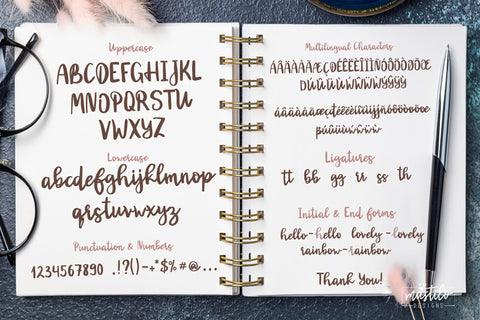 Uppercase
ABCDEFGHIJKL
MNOPQRSTUV
VWXYZ
Lowercase
abcdefghijklmnop
qrstuvwxyz
Punctuation & Numbers
1234567890 .!?()-+*$%#@...
Multilingual Characters
Ligatures
tt bb gg rr ss th
Initial & End forms
hello-hello lovely-lovely
rainbow-rainbow
Thank You!
mustilo
DESIGNS